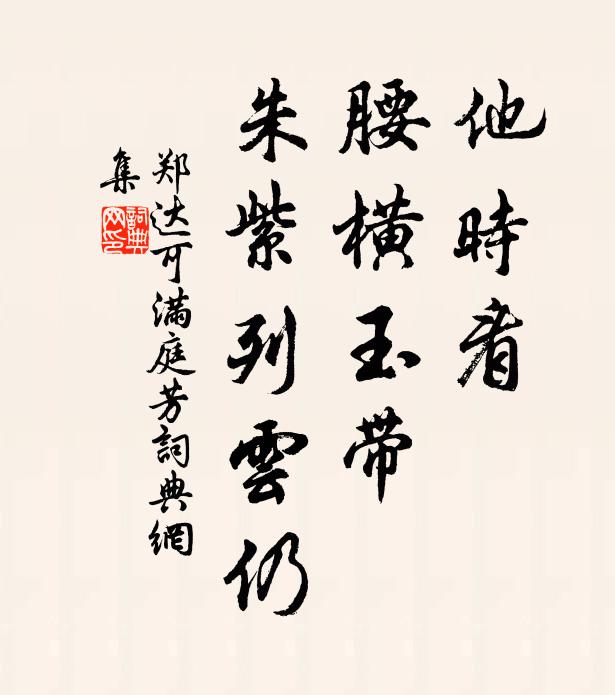 他時看
腰橫玉带
朱紫列雲仍
郑达可满庭芳詞典網
集
詞典
网印